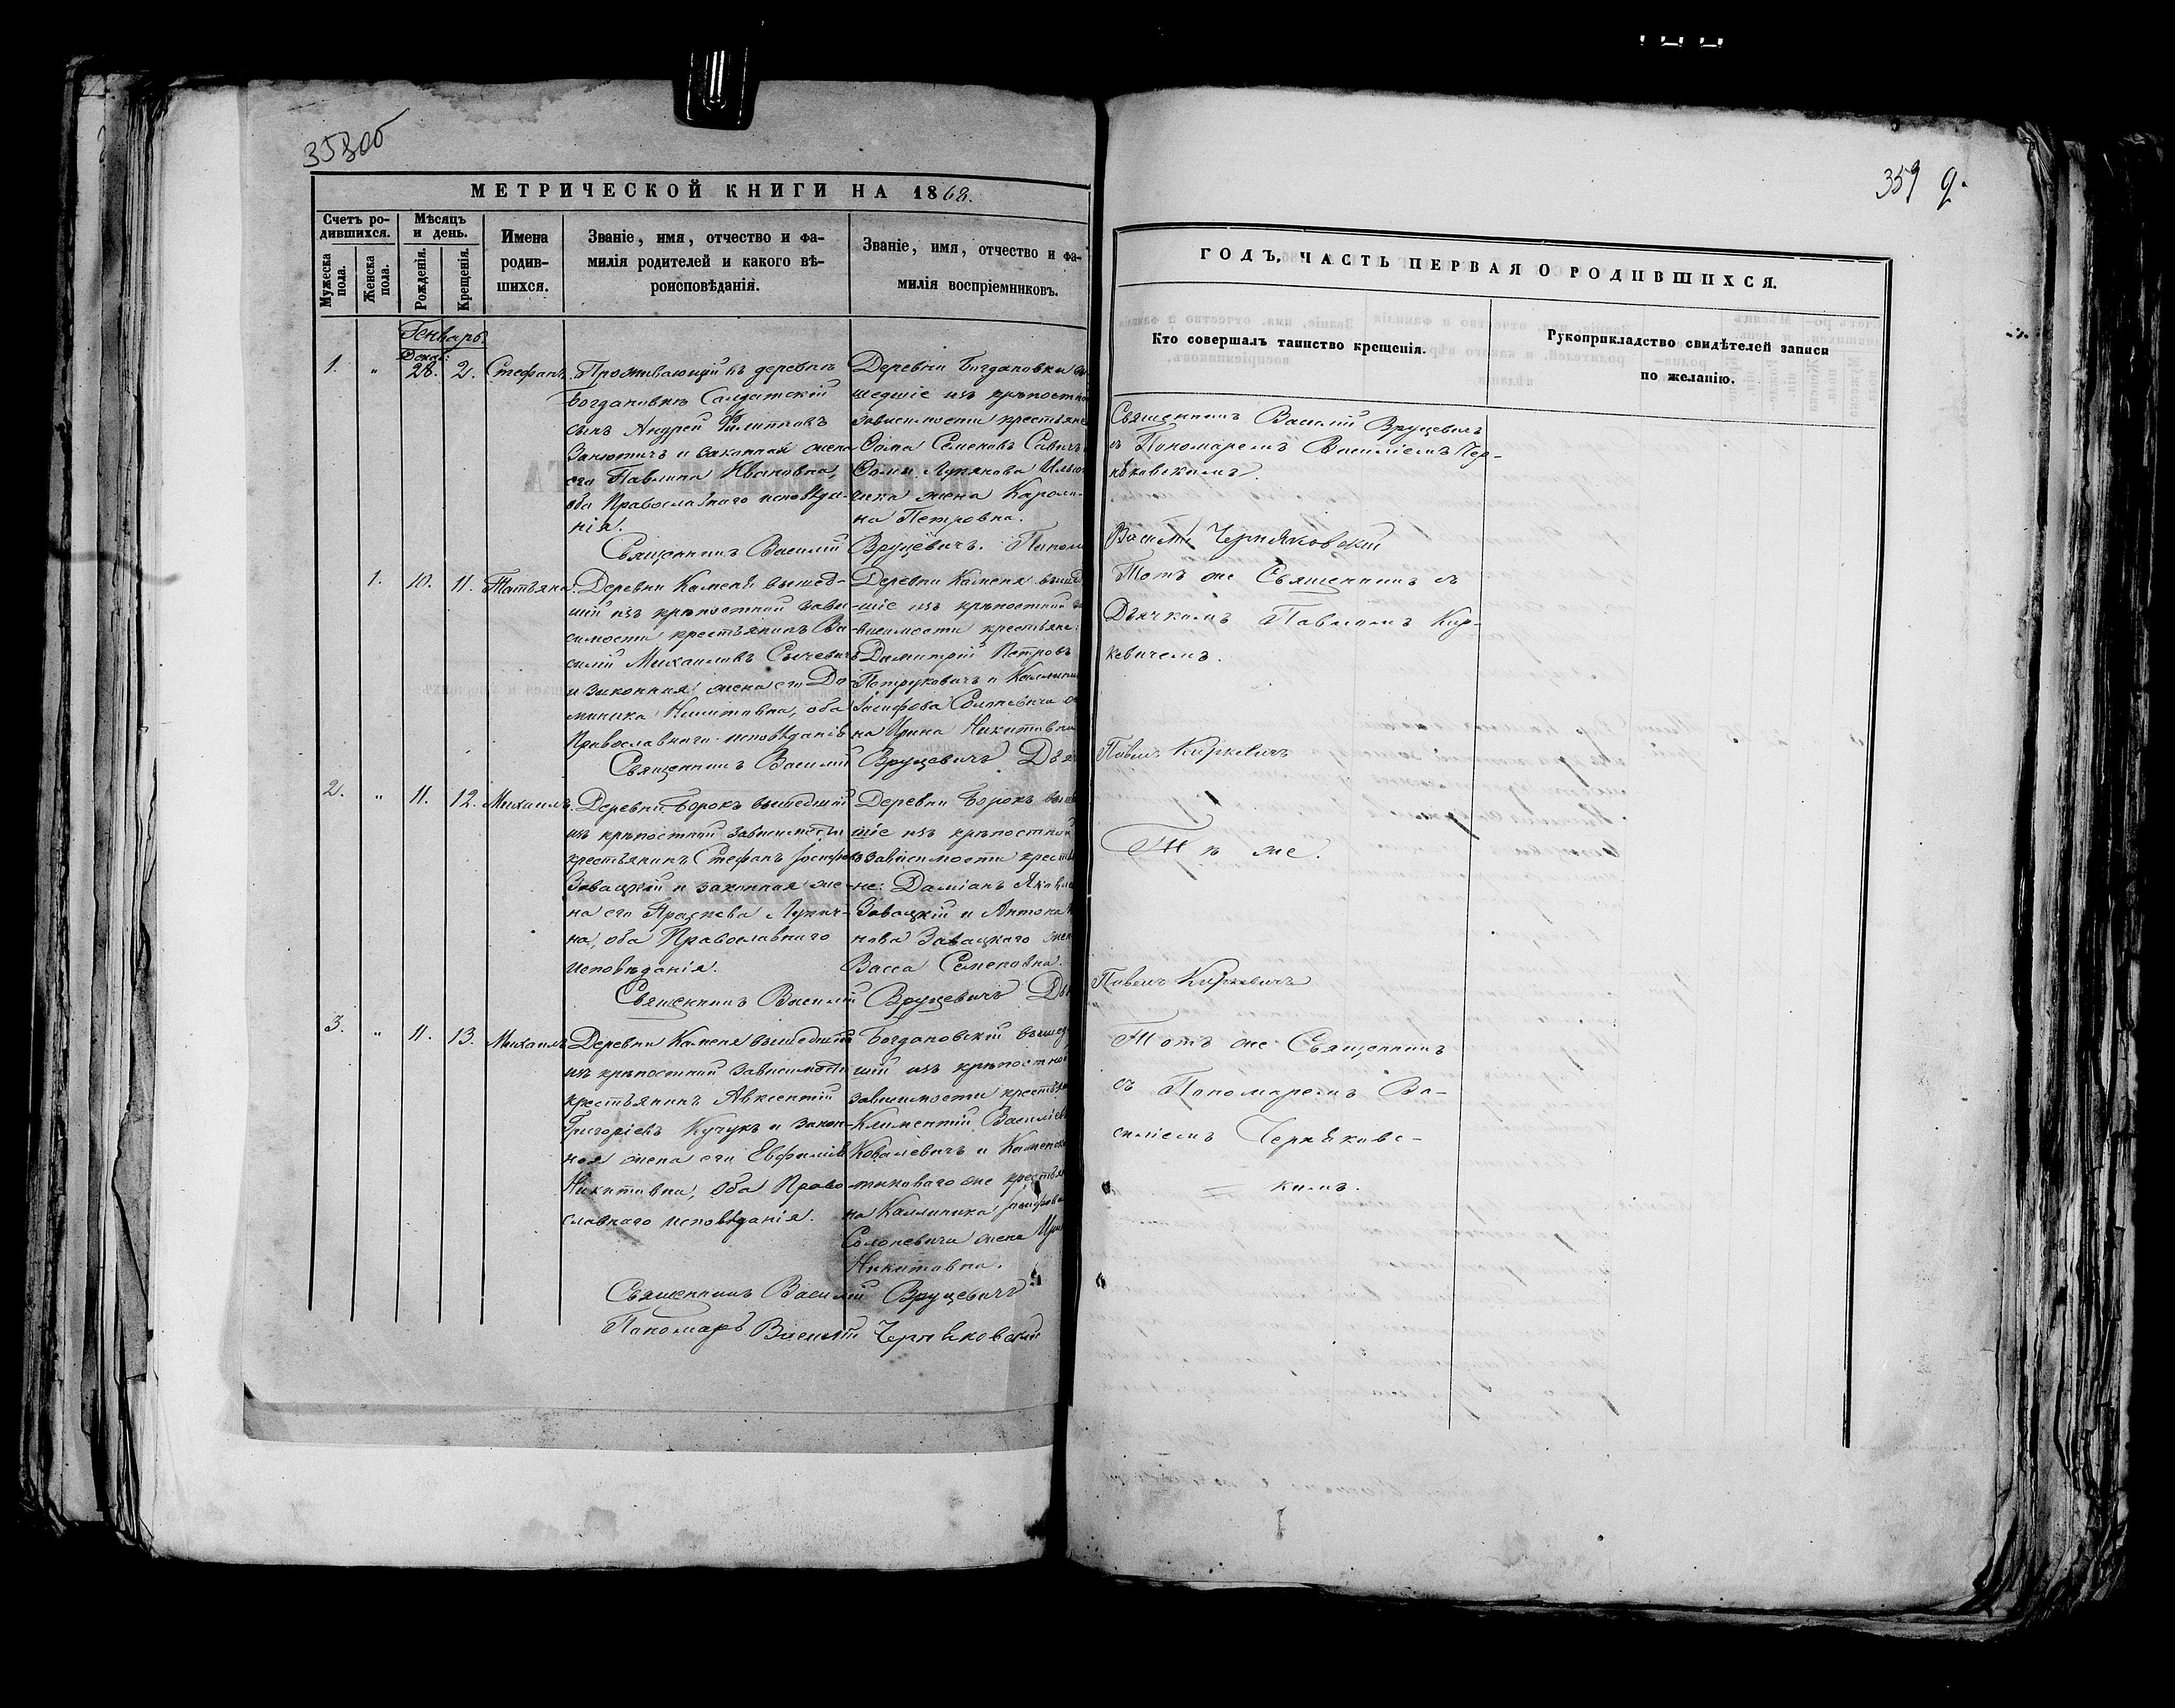 358об
МЕТРИЧЕСКОЙ КНИГИ НА 1868.
Счетъ ро-
дившихся.
Мѣсяцъ
и день.
Мужеска
пола.
Женска
пола.
Рожденія.
Крещенія.
Имена
родив-
шихся.
Званіе, имя, отчество и фа-
милія родителей и какого вѣ-
роисповѣданія.
Званіе, имя, отчество и фа-
милія воспріемниковъ.
Генварь
Декаб:
1. " 28. 2. Стефанъ.
Проживающій въ деревнѣ
Богдановкѣ Солдатскій
сынъ Андрей Филиповъ
и законная жена
его Павлина Ивановна,
оба Православнаго исповѣда-
нія.
Деревни Богдановки вы-
шедшіе изъ крѣпостной
зависимости крестьяне
Ѳома Семеновъ Савичъ
жена Кароли-
на Петровна.
Священникъ Василій Вруцевичъ. Поном
1. 10. 11. Татьяна.
Деревни Каменя вышед-
шій изъ крѣпостной зави-
симости крестьянинъ Ва-
силій Михаиловъ Сычевичъ
и законная жена его До-
миника Никитовна, оба
Православнаго исповѣданія
Деревни Каменя вышед
-шіе изъ крѣпостной за
-висимости крестьяне:
Димитрій Петровъ
Петруковичъ и Каллиник
Іосифова Солоневича же
на Ирина Никитовна
Священникъ Василій Вруцевичъ Дья
2. " 11. 12. Михаилъ.
Деревни Борокъ вышедшій
изъ крѣпостной зависимости
крестьянинъ Стефанъ Іосифовъ
Завацкій и законная же-
на его Праскева Лукич-
на, оба Православнаго
исповѣданія.
Деревни Борокъ вышед
шіе изъ крѣпостной
зависимости кресть
не: Даміанъ Яковлев
Завацкій и Антона
нова Завацкаго жен
Васса Семеновна.
Священникъ Василій Вруцевичъ Дья
3. " 11. 13. Михаилъ
Деревни Каменя вышедшій
изъ крѣпостной зависимости
крестьянинъ Авксентій
Григоріевъ Кучукъ и закон-
ная жена его Евфимія
Никитовна, оба Право-
славнаго исповѣданія.
Богдановскій вышед-
шій изъ крѣпостной
зависимости крестьян
Климентій Василіев
Ковалевичъ и Каменска
таковаго же крестья
на Каллиника Іосифова
Солоневича жена Ири
Никитовна.
Священникъ Василій Вруцевичъ
Пономарь Василій Чернѣковскій
359 д.
ГОДЪ, ЧАСТЬ ПЕРВАЯ О РОДИВШИХСЯ.
Кто совершалъ таинство крещенія.
Рукоприкладство свидѣтелей записи
по желанію.
Священникъ Василій Вруцевичъ
съ Пономаремъ Василіемъ Чер-
нѣковскимъ.
Василій Чернѣковскій
Тотъ же Священникъ съ
Дьячкомъ Павломъ Кир-
кевичемъ.
Павелъ Киркевичъ
Тѣ же.
Павелъ Киркевичъ
Тотъ же Священникъ
съ Пономаремъ Ва-
силіемъ Чернѣковс-
кимъ.